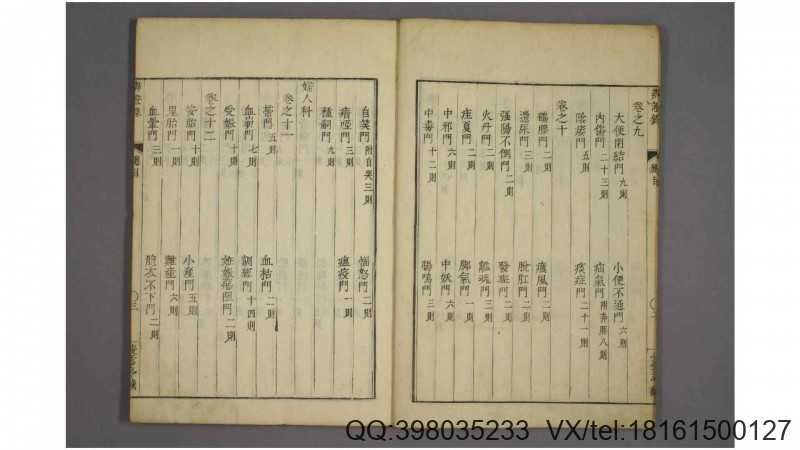 卷之九
大便閉結門 九則 小便不通門 六則
內傷門 二十三則 疝氣門 附奔豚 八則
陰痿門 五則 痰症門 二十一則
卷之十
鶴膝門 二則 癘風門 二則
遺尿門 三則 脫肛門 二則
強陽不倒門 二則 發斑門 二則
火丹門 二則 離魂門 二則
疰夏門 二則 脚氣門 一則
中邪門 六則 中妖門 六則
中毒門 十二則 腸鳴門 三則
自笑門 附自哭 三則 惱怒門 二則
瘖啞門 三則 瘟疫門 一則
種嗣門 九則
婦人科
卷之十一
帶門 五則 血枯門 二則
血崩門 七則 調經門 十四則
受妊門 十則 妊娠惡阻門 二則
卷之十二
安胎門 十則 小產門 五則
鬼胎門 一則 難產門 六則
血暈門 三則 胞衣不下門 二則
辨證錄
目
三
QQ:398035233 VX/tel:18161500127